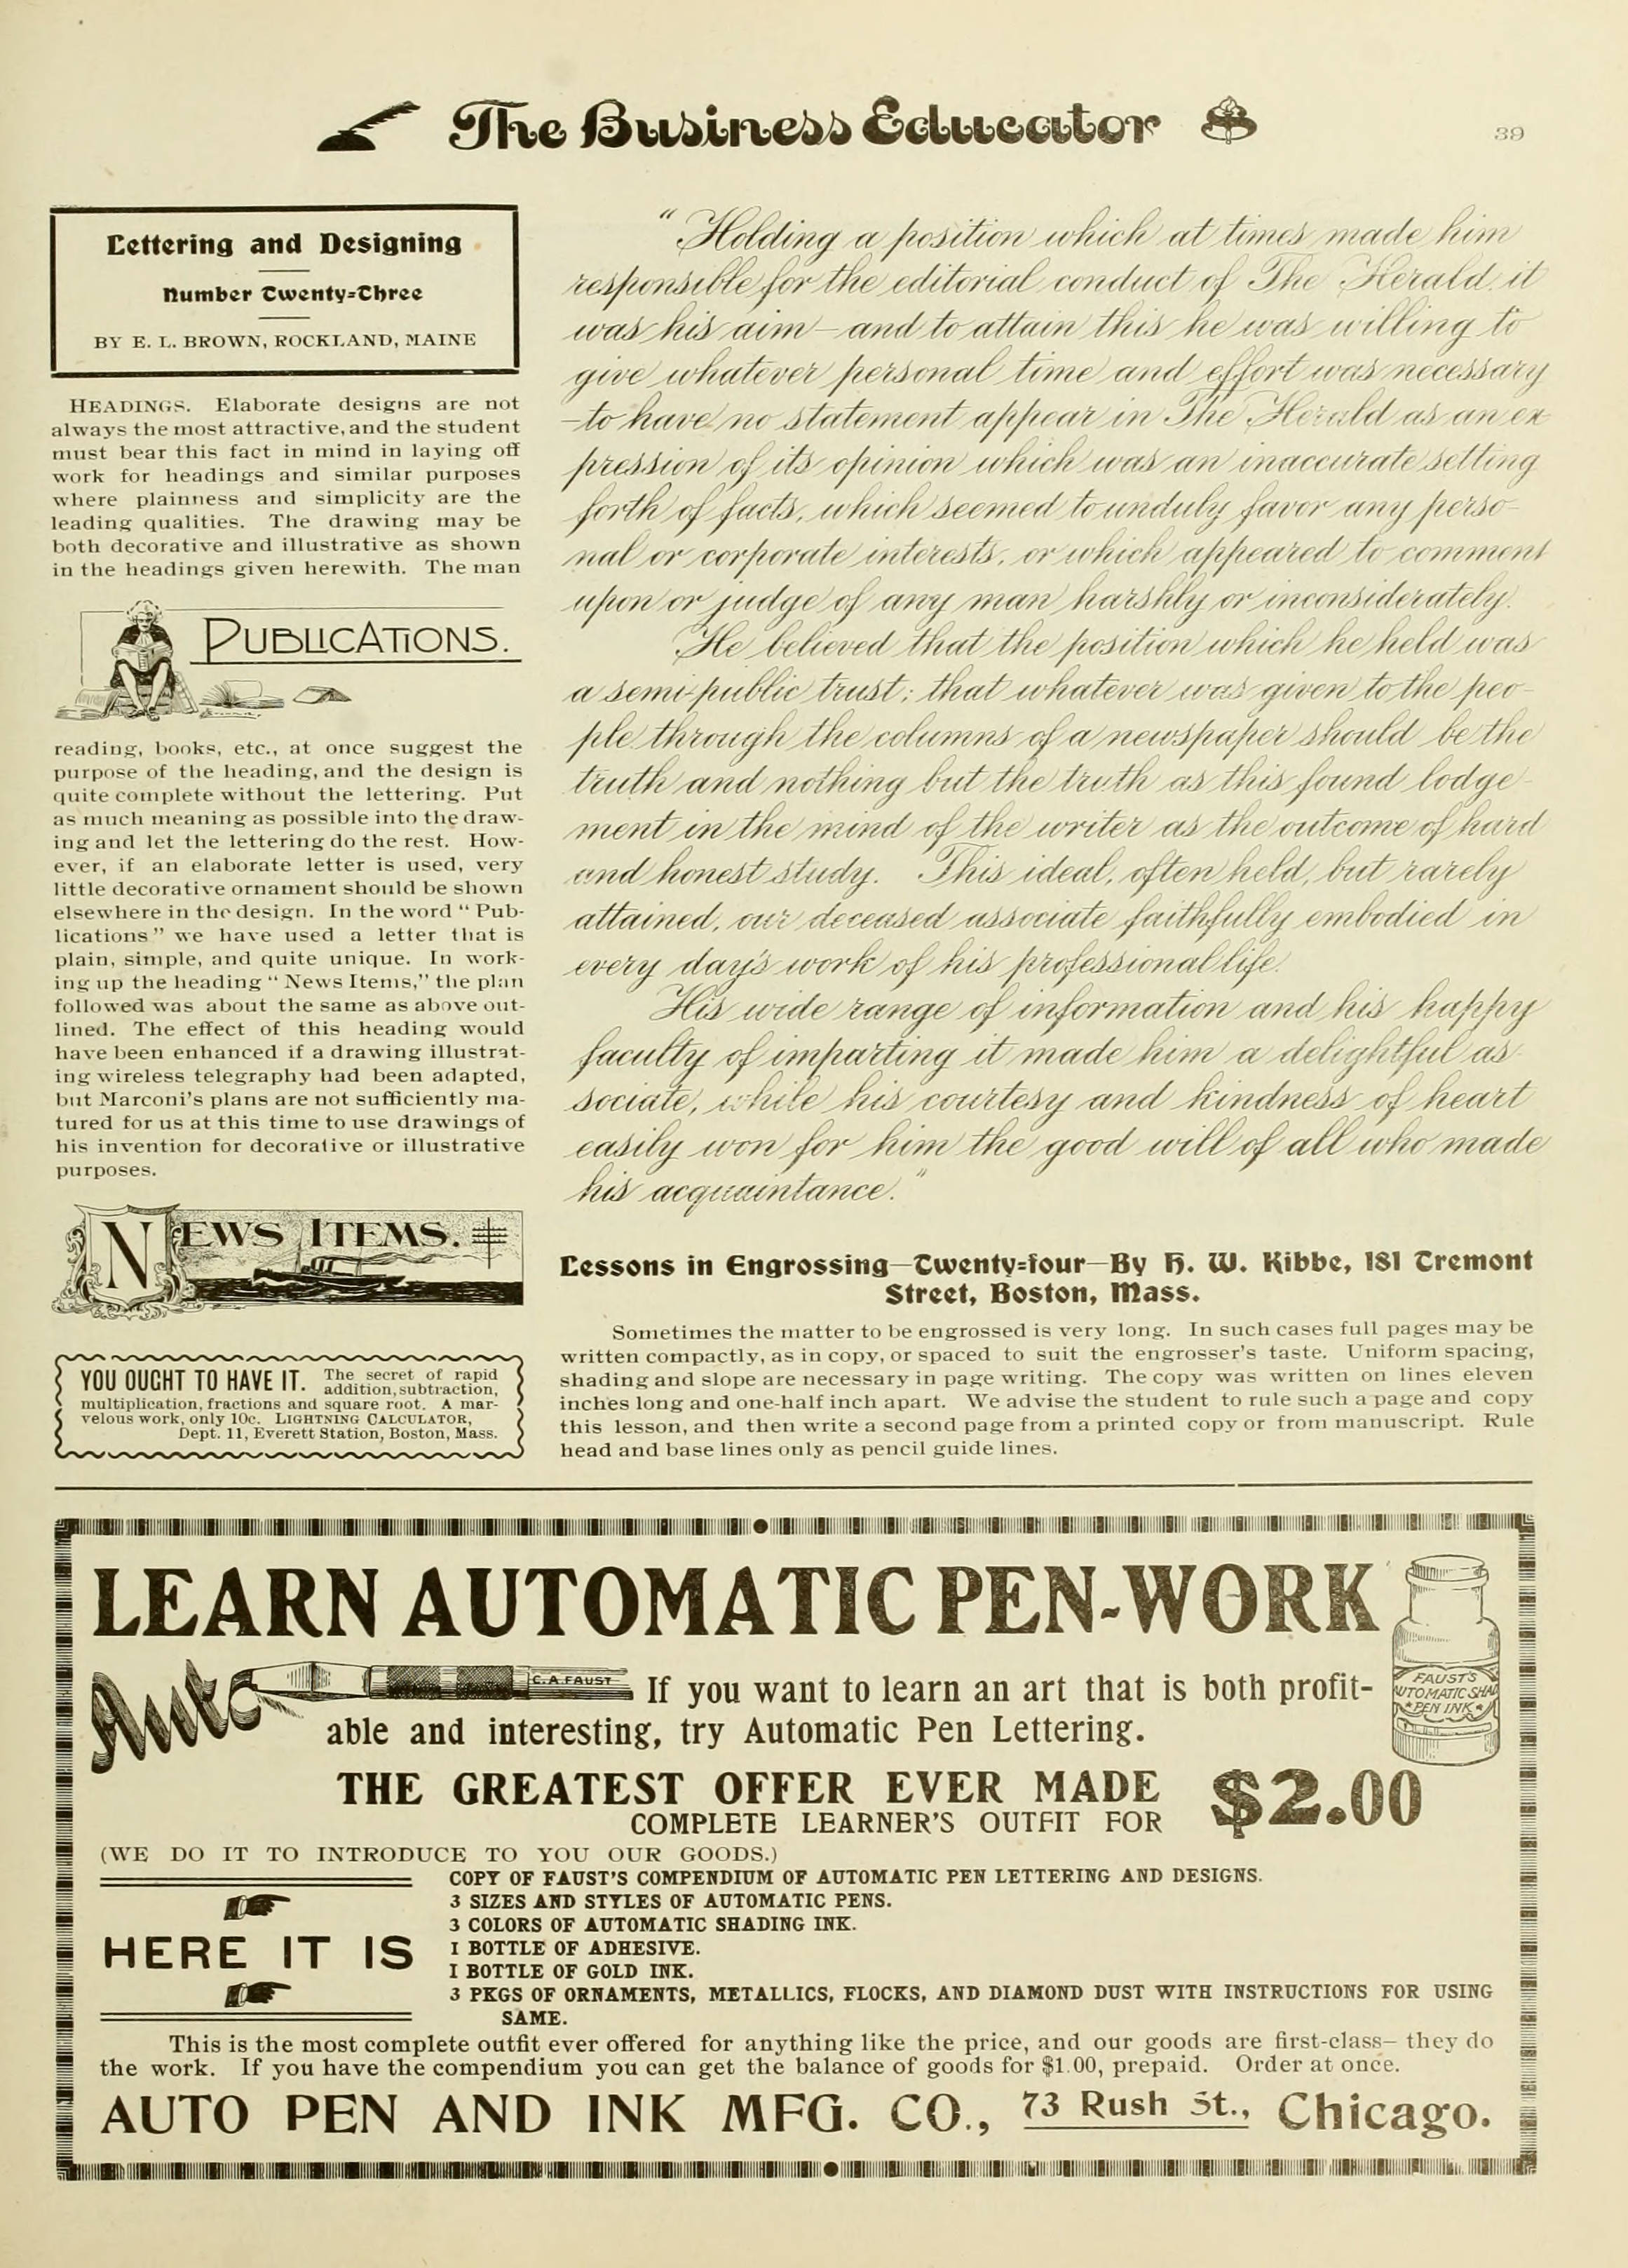 The Business Educator
39
Lettering and Designing
Number Twenty=Three
BY E. L. BROWN, ROCKLAND, MAINE
HEADINGS. Elaborate designs are not
always the most attractive, and the student
must bear this fact in mind in laying off
work for headings and similar purposes
where plainness and simplicity are the
leading qualities. The drawing may be
both decorative and illustrative as shown
in the headings given herewith. The man
PUBLICATIONS.
reading, books, etc., at once suggest the
purpose of the heading, and the design is
quite complete without the lettering. Put
as much meaning as possible into the draw-
ing and let the lettering do the rest. How-
ever, if an elaborate letter is used, very
little decorative ornament should be shown
elsewhere in the design. In the word " Pub-
lications " we have used a letter that is
plain, simple, and quite unique. In work-
ing up the heading " News Items," the plan
followed was about the same as above out-
lined. The effect of this heading would
have been enhanced if a drawing illustrat-
ing wireless telegraphy had been adapted,
but Marconi's plans are not sufficiently ma-
tured for us at this time to use drawings of
his invention for decorative or illustrative
purposes.
NEWS ITEMS.
YOU OUGHT TO HAVE IT. The secret of rapid
addition, subtraction,
multiplication, fractions and square root. A mar-
velous work, only 10c. LIGHTNING CALCULATOR,
Dept. 11, Everett Station, Boston, Mass.
"Holding a position which at times made him
responsible for the editorial conduct of The Herald, it
was his aim—and to attain this he was willing to
give whatever personal time and effort was necessary
—to have no statement appear in The Herald as an ex-
pression of its opinion which was an inaccurate setting
forth of facts, which seemed to unduly favor any perso-
nal or corporate interests, or which appeared to comment
upon or judge of any man harshly or inconsiderately.
He believed that the position which he held was
a semi-public trust; that whatever was given to the peo-
ple through the columns of a newspaper should be the
truth and nothing but the truth as this found lodge-
ment in the mind of the writer as the outcome of hard
and honest study. This ideal, often held, but rarely
attained, our deceased associate faithfully embodied in
every day's work of his professional life.
His wide range of information and his happy
faculty of imparting it made him a delightful as-
sociate, while his courtesy and kindness of heart
easily won for him the good will of all who made
his acquaintance."
Lessons in Engrossing—Twenty=four—By H. W. Kibbe, 181 Tremont
Street, Boston, Mass.
Sometimes the matter to be engrossed is very long. In such cases full pages may be
written compactly, as in copy, or spaced to suit the engrosser's taste. Uniform spacing,
shading and slope are necessary in page writing. The copy was written on lines eleven
inches long and one-half inch apart. We advise the student to rule such a page and copy
this lesson, and then write a second page from a printed copy or from manuscript. Rule
head and base lines only as pencil guide lines.
LEARN AUTOMATIC PEN-WORK
Auto
C. A. FAUST
If you want to learn an art that is both profit-
able and interesting, try Automatic Pen Lettering.
FAUST'S
AUTOMATIC SHAD
PEN INK
THE GREATEST OFFER EVER MADE
COMPLETE LEARNER'S OUTFIT FOR
$2.00
(WE DO IT TO INTRODUCE TO YOU OUR GOODS.)
HERE IT IS
COPY OF FAUST'S COMPENDIUM OF AUTOMATIC PEN LETTERING AND DESIGNS.
3 SIZES AND STYLES OF AUTOMATIC PENS.
3 COLORS OF AUTOMATIC SHADING INK.
1 BOTTLE OF ADHESIVE.
1 BOTTLE OF GOLD INK.
3 PKGS OF ORNAMENTS, METALLICS, FLOCKS, AND DIAMOND DUST WITH INSTRUCTIONS FOR USING
SAME.
This is the most complete outfit ever offered for anything like the price, and our goods are first-class— they do
the work. If you have the compendium you can get the balance of goods for $1.00, prepaid. Order at once.
AUTO PEN AND INK MFG. CO., 73 Rush St., Chicago.